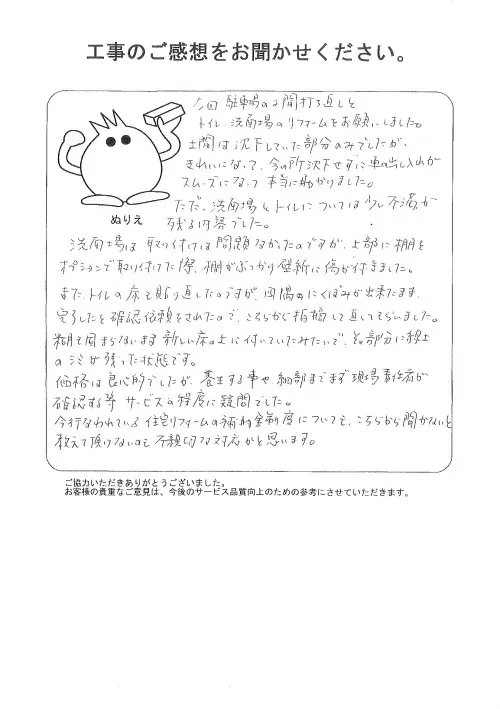 工事のご感想をお聞かせください。
今回 駐車場の土間打ち直しと
トイレ、洗面場のリフォームをお願いしました。
土間は沈下していた部分のみでしたが、
きれいになって、今の所沈下せずに車の出し入れが
スムーズになって本当に助かりました。
ただ、洗面場とトイレについては少し不満が
残る内容でした。
ぬりえ
洗面場は取り付けは問題なかったのですが、上部に棚を
オプションで取り付けた際、棚がぶつかり壁紙に傷が付きました。
また、トイレの床も貼り直したのですが、四隅のにくぼみが出来たまま、
完了したと確認依頼をされたので、こちらから指摘して直してもらいました。
糊も固まらないまま新しい床の上に付いていたみたいで、その部分に
のシミが残った状態です。
価格は良心的でしたが、養生する事や、細部までまず現場責任者が
確認する等 サービスの程度に疑問でした。
今行なわれている住宅リフォームの補助金制度についても、こちらから聞かないと
教えて頂けないのも不親切な対応かと思います。
ご協力いただきありがとうございました。
お客様の貴重なご意見は、今後のサービス品質向上のための参考にさせていただきます。